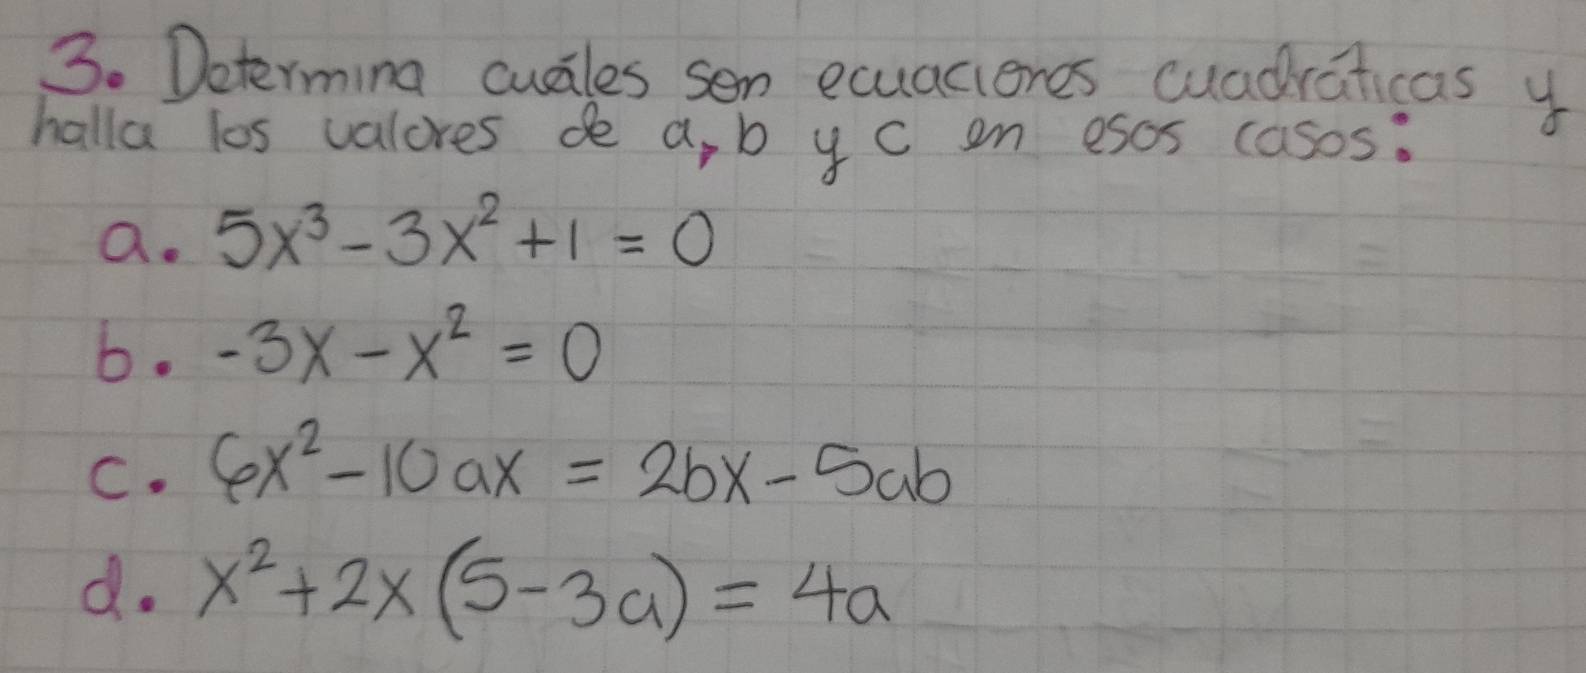 3. Determina cuáles son ecuaciones cuadráticas y
halla los valores de a, b y c en esos casos:
a. 5x³ - 3x² + 1 = 0
b. -3x - x² = 0
c. 6x² - 10ax = 2bx - 5ab
d. x² + 2x (5 - 3a) = 4a